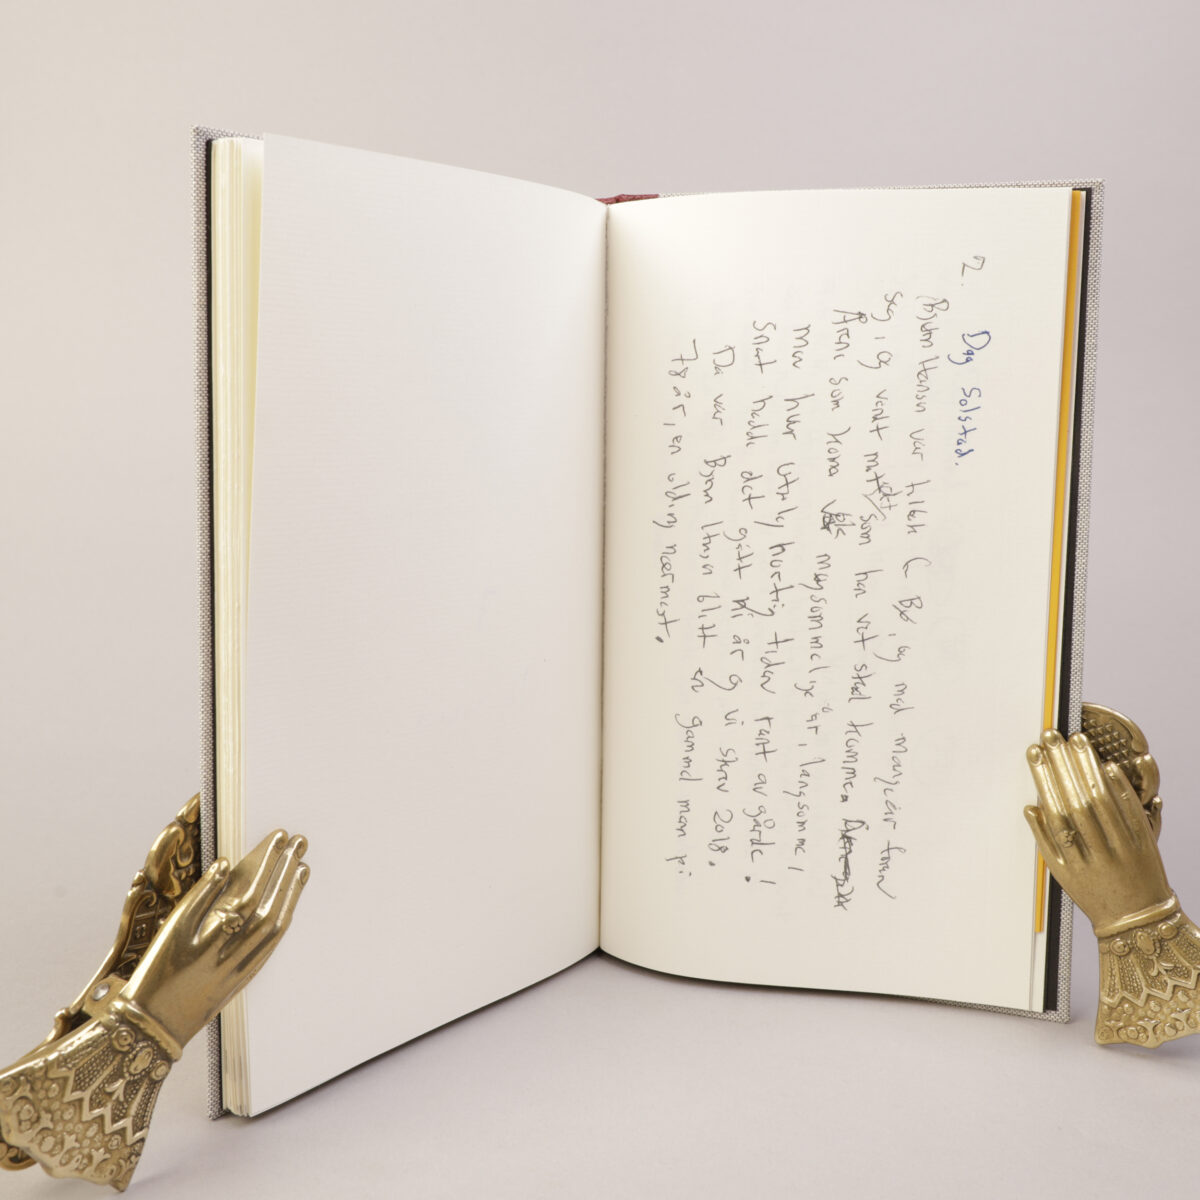 2.
Dag Solstad.
Bjørn Hansen var tilbake i Bø, og med mange år foran
seg, og ventet som han vet skal komme.
Årene som kom gikk møysommelige år, langsomme,
men hvor utrolig hurtig tiden rant av gårde!
Snart hadde det gått ni år og vi skrev 2018.
Da var Bjørn Hansen blitt en gammel mann på
78 år, en olding nærmest.